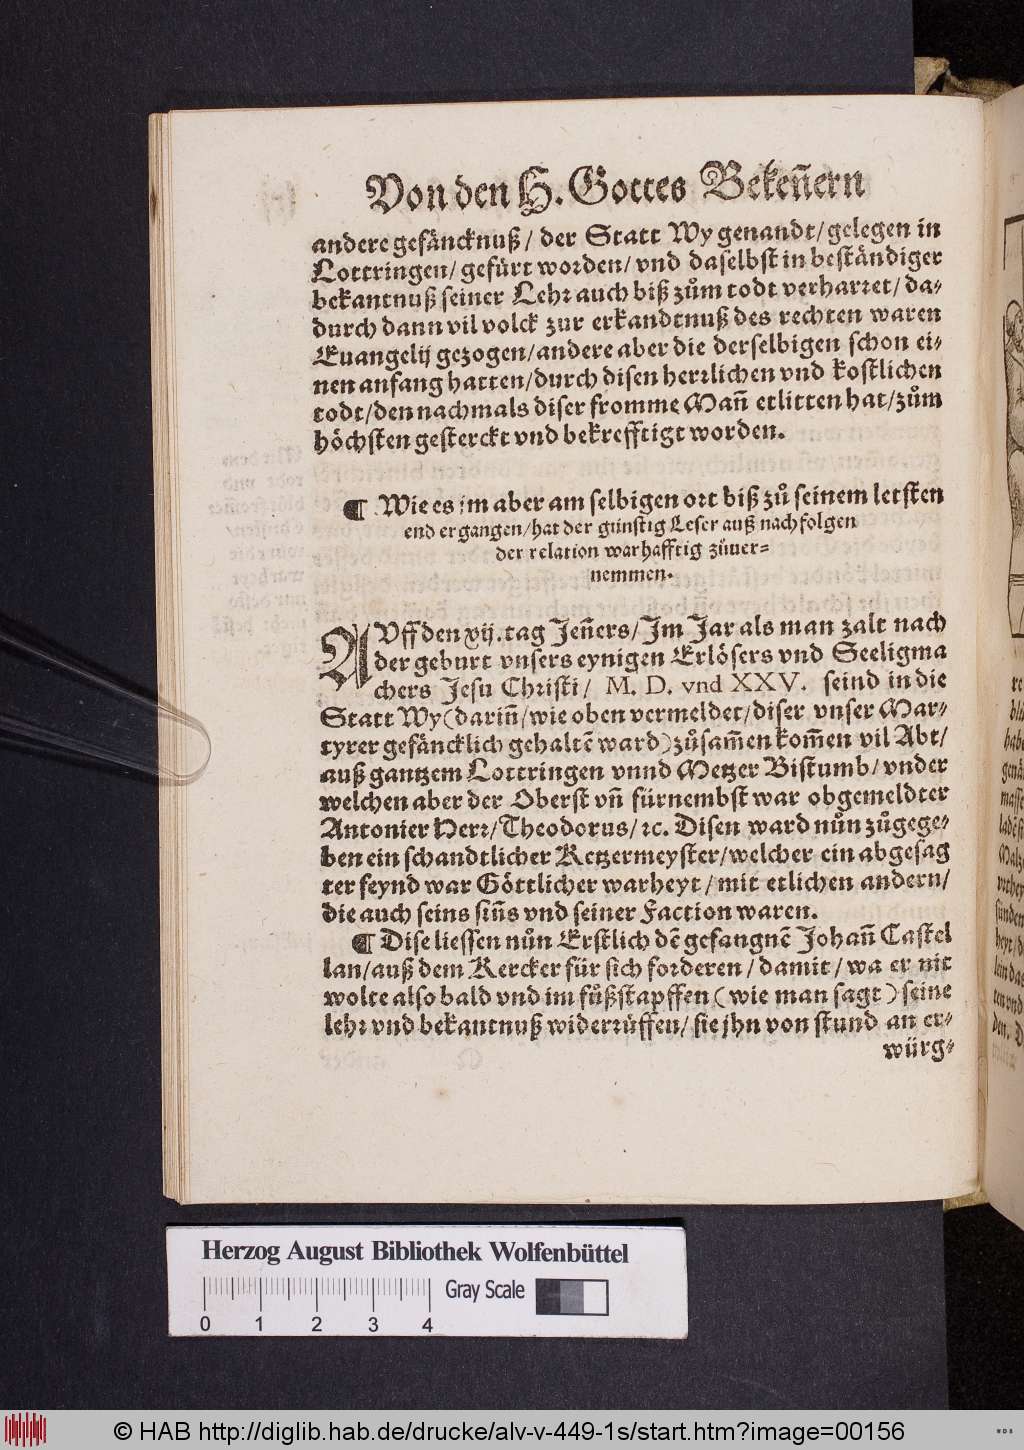 Von den H. Gottes Bekeñern
andere gefäncknuß / der Statt Wy genandt / gelegen in
Lottringen / gefürt worden / vnd daselbst in beständiger
bekantnuß seiner Lehꝛ auch biß zům todt verharꝛet / da⸗
durch dann vil volck zur erkandtnuß des rechten waren
Euangelij gezogen / andere aber die derselbigen schon ei⸗
nen anfang hatten / durch disen herꝛlichen vnd kostlichen
todt / den nachmals diser fromme Mañ erlitten hat / zům
höchsten gesterckt vnd bekrefftigt worden.
¶ Wie es jm aber am selbigen oꝛt biß zů seinem letsten
end ergangen / hat der günstig Leser auß nachfolgen
der relation warhafftig zůuer⸗
nemmen.
AVff den xij. tag Jeñers / Jm Jar als man zalt nach
der geburt vnsers eynigen Erlösers vnd Seeligma
chers Jesu Christi / M. D. vnd XXV. seind in die
Statt Wy (dariñ / wie oben vermeldet / diser vnser Mar⸗
tyrer gefäncklich gehaltẽ ward) zůsam̃en kom̃en vil Abt /
auß gantzem Lottringen vnnd Metzer Bistumb / vnder
welchen aber der Oberst vñ fürnembst war obgemeldter
Antonier Herꝛ / Theodorus / ꝛc. Disen ward nůn zůgege⸗
ben ein schandtlicher Ketzermeyster / welcher ein abgesag
ter feynd war Göttlicher warheyt / mit etlichen andern /
die auch seins siñs vnd seiner Faction waren.
¶ Dise liessen nůn Erstlich dẽ gefangnẽ Johañ Castel
lan / auß dem Kercker für sich foꝛderen / damit / wa er nit
wolte also bald vnd im fůßstapffen (wie man sagt) seine
lehꝛ vnd bekantnuß widerꝛůffen / sie jhn von stund an er⸗
würg⸗
Herzog August Bibliothek Wolfenbüttel
Gray Scale
0 1 2 3 4
© HAB http://diglib.hab.de/drucke/alv-v-449-1s/start.htm?image=00156